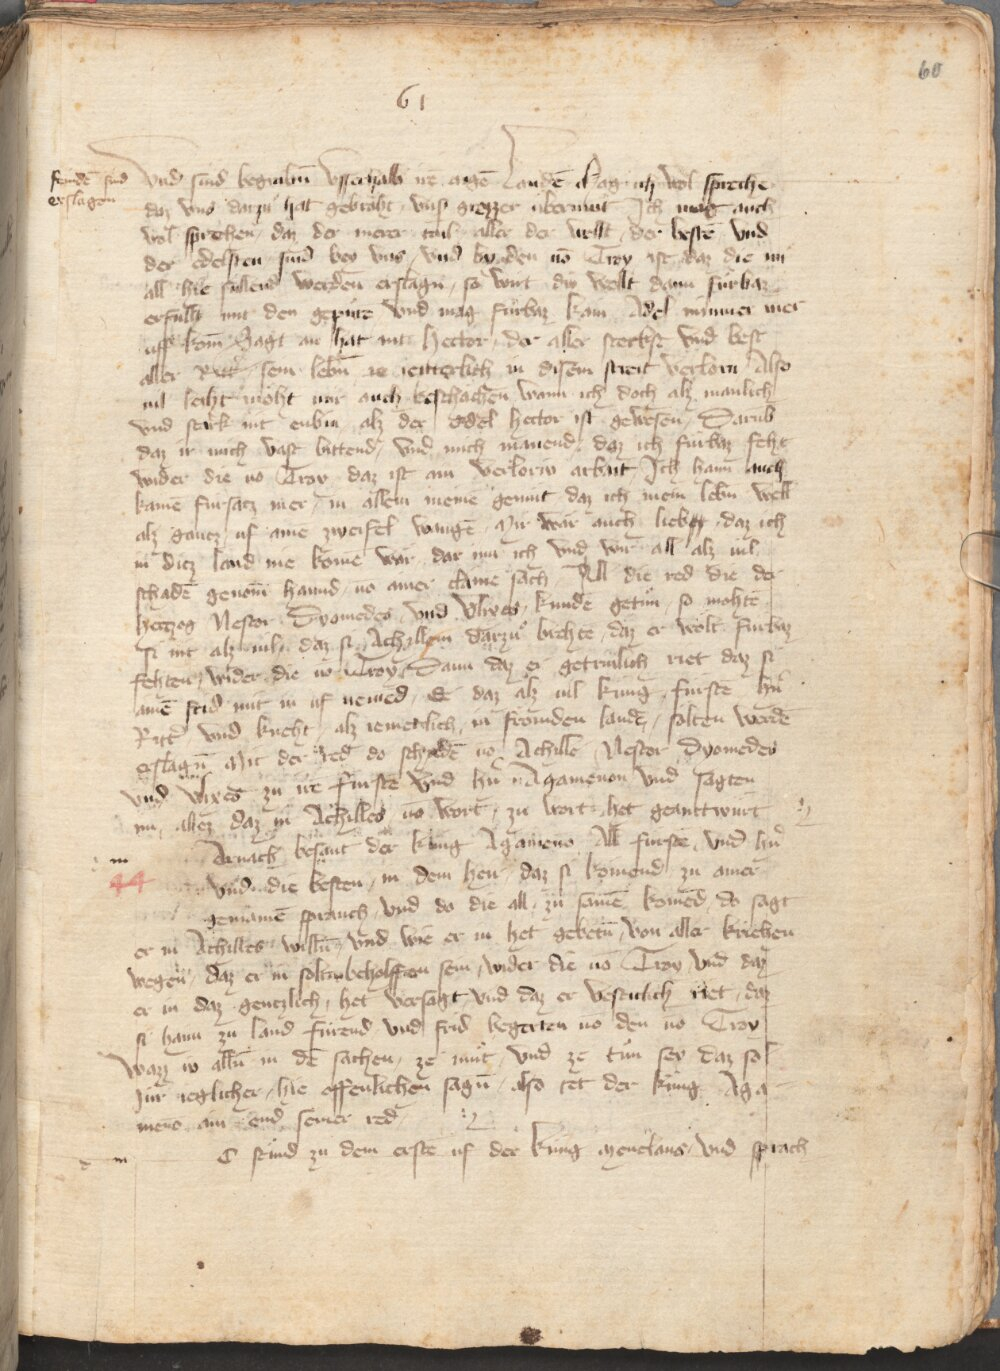 60
61
fromde sind
erslagen
Vnd sind begrabn vsserhalb ire aigē Landē Mag ich wol spreche
daz vns darzu hat gebraht vnser grozzer vbermut Ich mag auch
wol sprechen daz der merer tail aller der wellt der bestē vnd
der edelsten sind bey vns vnd by den vō Troy ist daz die nu
all hie sullend werden erslagn so wirt die wellt dann fürbaz
erfüllt mit den gepure vnd mag fürbaz kain Adel nimmer mer
uff kom Sagt an hat nit Hector der aller sterkst vnd best
aller Ritt sein lebn ie ritterlich in disem streit verlorn Also
vil leiht möht mir auch beschachen wann ich doch alz manlich
vnd stark nit enbin alz der edel Hector ist gewesen Darūb
daz ir mich vast bittend vnd mich manend daz ich fürbaz feht
wider die vō Troy daz ist ain verlorn arbait Ich hann auch
kainē fursatz mer in allem meinē gemüt daz ich mein lebn well
alz gantz uf ainē zweifel wangē Mir wär auch lieber daz ich
in ditz land nie komē wär dar inn ich vnd wir all alz vil
schadē genom̄ hannd vō ainer clainē sach All die red die der
hertzog Nestor Dyomedes vnd Vlixes kundē getun so mohtē
si nit alz vil daz si Achillem darzu brehtē daz er wölt fürbaz
fehten wider die vō Troy Dann daz er getrulich riet daz si
ainē frid mit in uf nemēd E daz alz vil küng fürstē hr̄
Ritt vnd kneht alz iemerlich in fromden landē solten werdē
erslagn Mit der red do schydē vō Achille Nestor Dyomedes
vnd Vlixes zu ire fürstē vnd hr̄ Agamenon vnd sagten
im allez daz in Achilles vō wort zu wort het geanttwürt
m
44
Arnach besant der küng Agameno All fürstē vnd hr̄
vnd die besten in dem her daz si komend zu ainer
gemainē sprauch vnd do die all zu samē komēd do sagt
er in Achilles willn vnd wie er in het gebetn von aller kriechen
wegen daz er in solt beholffen sein wider die vō Troy vnd daz
er in daz gentzlich het versagt vnd daz er vestenlich riet daz
si hann zu land fürend vnd frid begerten vō den vō Troy
Wazz iv alln in dē sachen ze mut vnd ze tun sey daz sol
Iür ieglicher hie offenlichen sagn also tet der küng Aga
meno ain end seiner red
m
O stund zu dem erstē uf der küng Menelaus vnd sprach